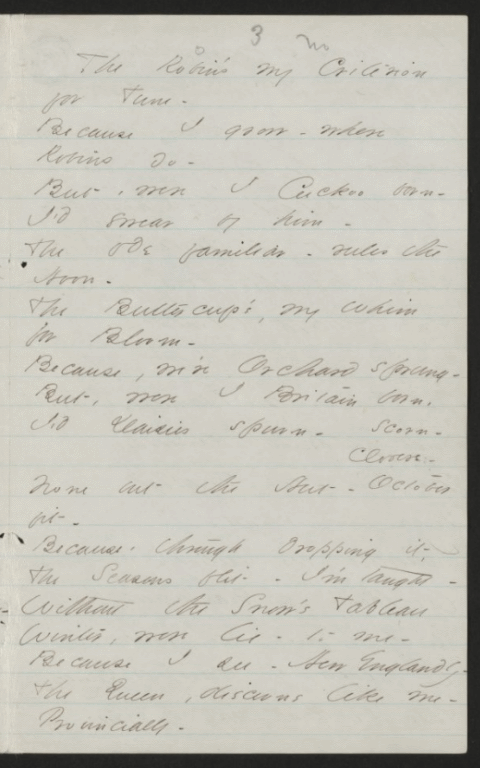 3 no
The Robin's my Criterion
for Tune -
Because I grow - where
Robins do -
But, were I Cuckoo born -
I'd swear by him -
The ode familiar - rules the
Noon -
The Buttercup's, my Whim
for Bloom -
Because, we're Orchard sprung -
But, were I Britain born,
I'd Daisies spurn - scorn -
Clovers -
None but the Nut - October
fit -
Because, through dropping it,
The Seasons flit - I'm taught -
Without the Snow's Tableau
Winter, were lie - to me -
Because I see - New Englandly -
The Queen, discerns like me -
Provincially -